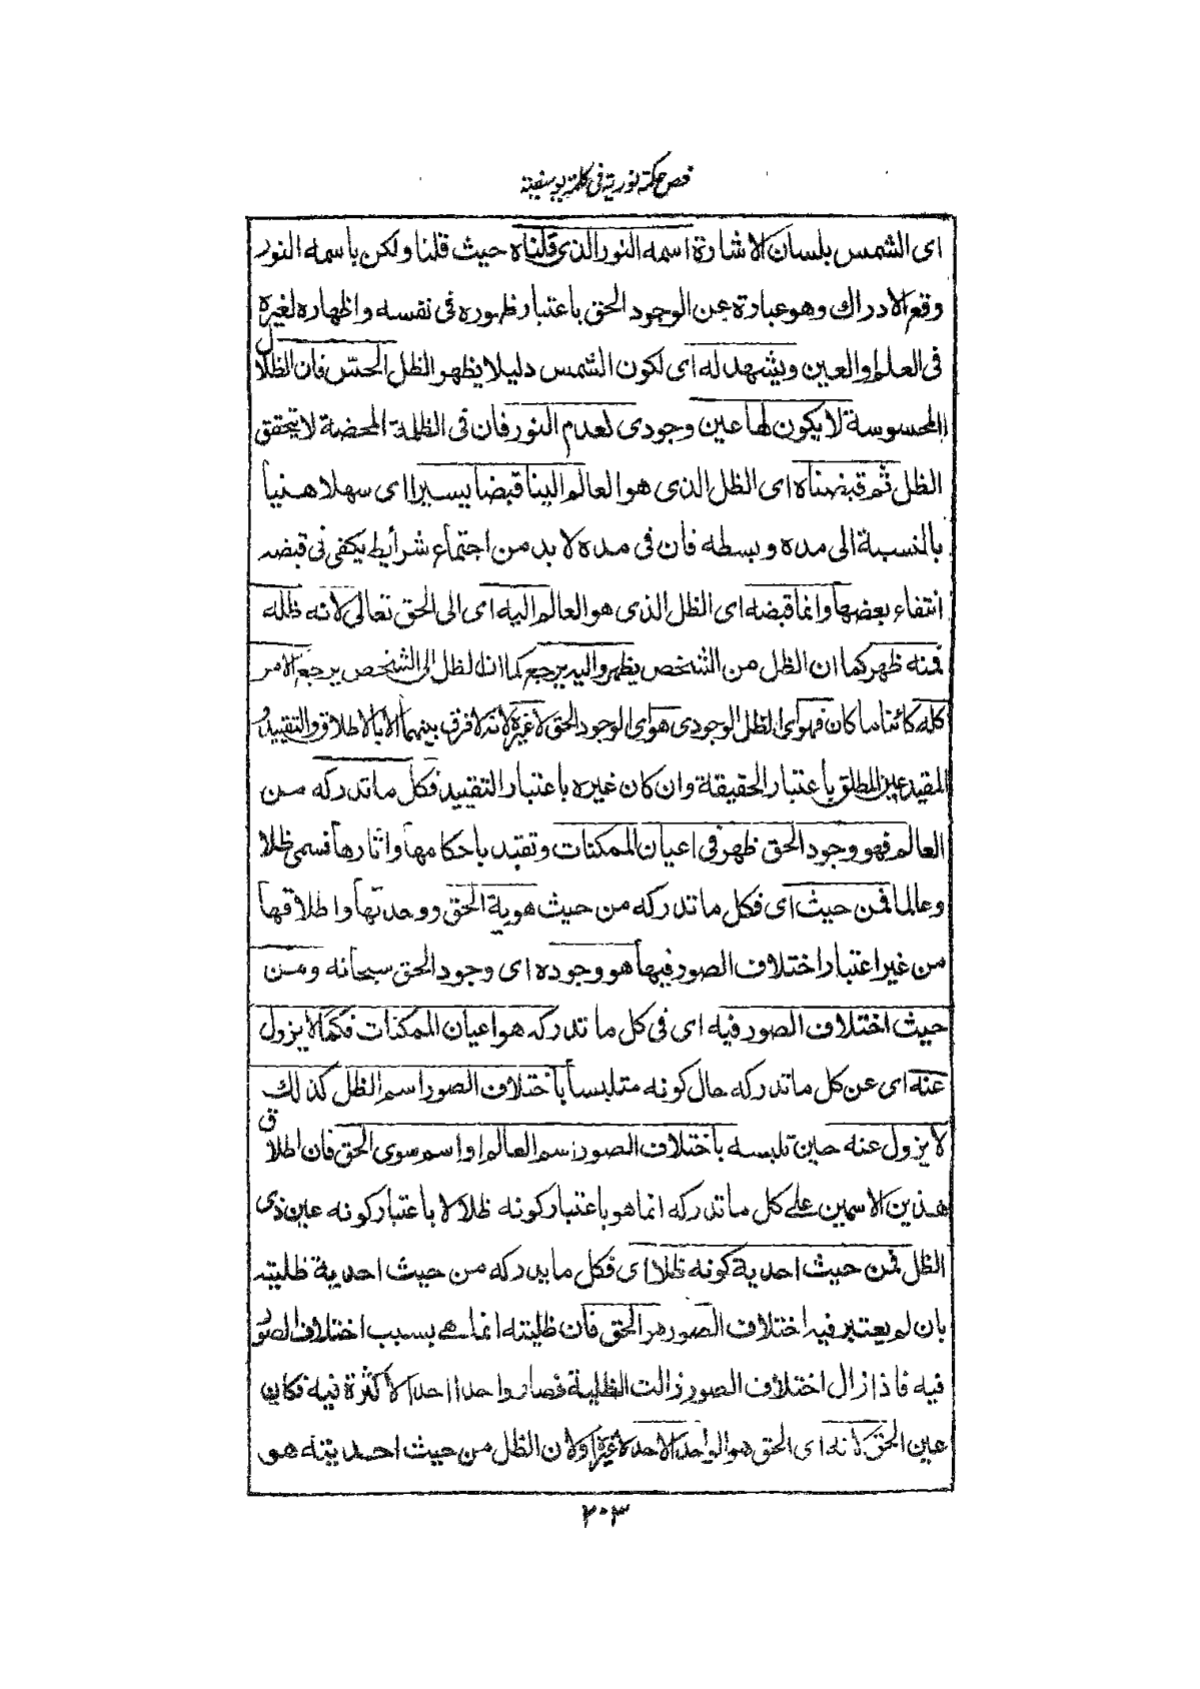 فص حكمة نورية في كلمة يوسفية
اى الشمس بلسان الاشارة اسمه النور الذى قلناه حيث قلنا ولكن باسمه النور
وقع الادراك وهو عبارة عن الوجود الحق باعتبار ظهوره فى نفسه واظهاره لغيره
فى العلم او العين ويشهد له اى لكون الشمس دليلا يظهر الظل الحس فان الظلال
المحسوسة لا يكون لها عين وجودى لعدم النور فان فى الظلمة المحضة لا يتحقق
الظل ثم قبضناه اى الظل الذى هو العالم الينا قبضا يسيرا اى سهلا هنيأ
بالنسبة الى مده وبسطه فان فى مده لا بد من اجتماع شرأيط يكفى فى قبضه
انتفاء بعضها وانما قبضه اى الظل الذى هو العالم اليه اى الى الحق تعالى لانه ظله
فمنه ظهر كما ان الظل من الشخص يظهر واليه يرجع كما ان الظل الى الشخص يرجع الامر
كله كائنا ما كان فهو اى الظل الوجودى هو اى الوجود الحق لا غيره لانه لا فرق بينهما الا بالاطلاق والتقييد و
المقيد عين المطلق باعتبار الحقيقة وان كان غيره باعتبار التقييد فكل ما تدركه من
العالم فهو وجود الحق ظهر فى اعيان الممكنات وتقيد باحكامها واثارها فسمى ظلا
وعالما فمن حيث اى فكل ما تدركه من حيث هوية الحق ووحدتها واطلاقها
من غير اعتبار اختلاف الصور فيها هو وجوده اى وجود الحق سبحانه ومن
حيث اختلاف الصور فيه اى فى كل ما تدركه هو اعيان الممكنات فكما لا يزول
عنه اى عن كل ما تدركه حال كونه متلبسا باختلاف الصور اسم الظل كذلك
لا يزول عنه حين تلبسه باختلاف الصور اسم العالم او اسم سوى الحق فان اطلاق
هذين الاسمين على كل ما تدركه انما هو باعتبار كونه ظلا لا باعتبار كونه عين ذى
الظل فمن حيث احدية كونه ظلا اى فكل ما يدركه من حيث احدية ظليته
بان لم يعتبر فيه اختلاف الصور هو الحق فان ظليته انما هى بسبب اختلاف الصور
فيه فاذا زال اختلاف الصور زالت الظلية فصار واحدا احدا لا كثرة فيه فكان
عين الحق لانه اى الحق هو الواحد الاحد لا غيره ولان الظل من حيث احديته هو
٢٠٣